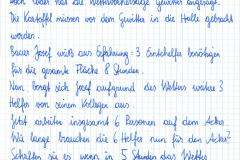 hat der Wettervorhersage Gewitter angesagt.
Die Kartoffel müssen vor dem Gewitter in die Halle gebracht
werden.
Bauer Josef weiß aus Erfahrung: 3 Erntehelfer benötigen
für die gesamte Fläche 8 Stunden.
Nun borgt sich Josef aufgrund des Wetters weitere 3
Helfer von seinen Kollegen aus.
Jetzt arbeiten insgesamt 6 Personen auf dem Acker.
Wie lange brauchen die 6 Helfer nun für den Acker?
Schaffen sie es wenn in 5 Stunden das Wetter